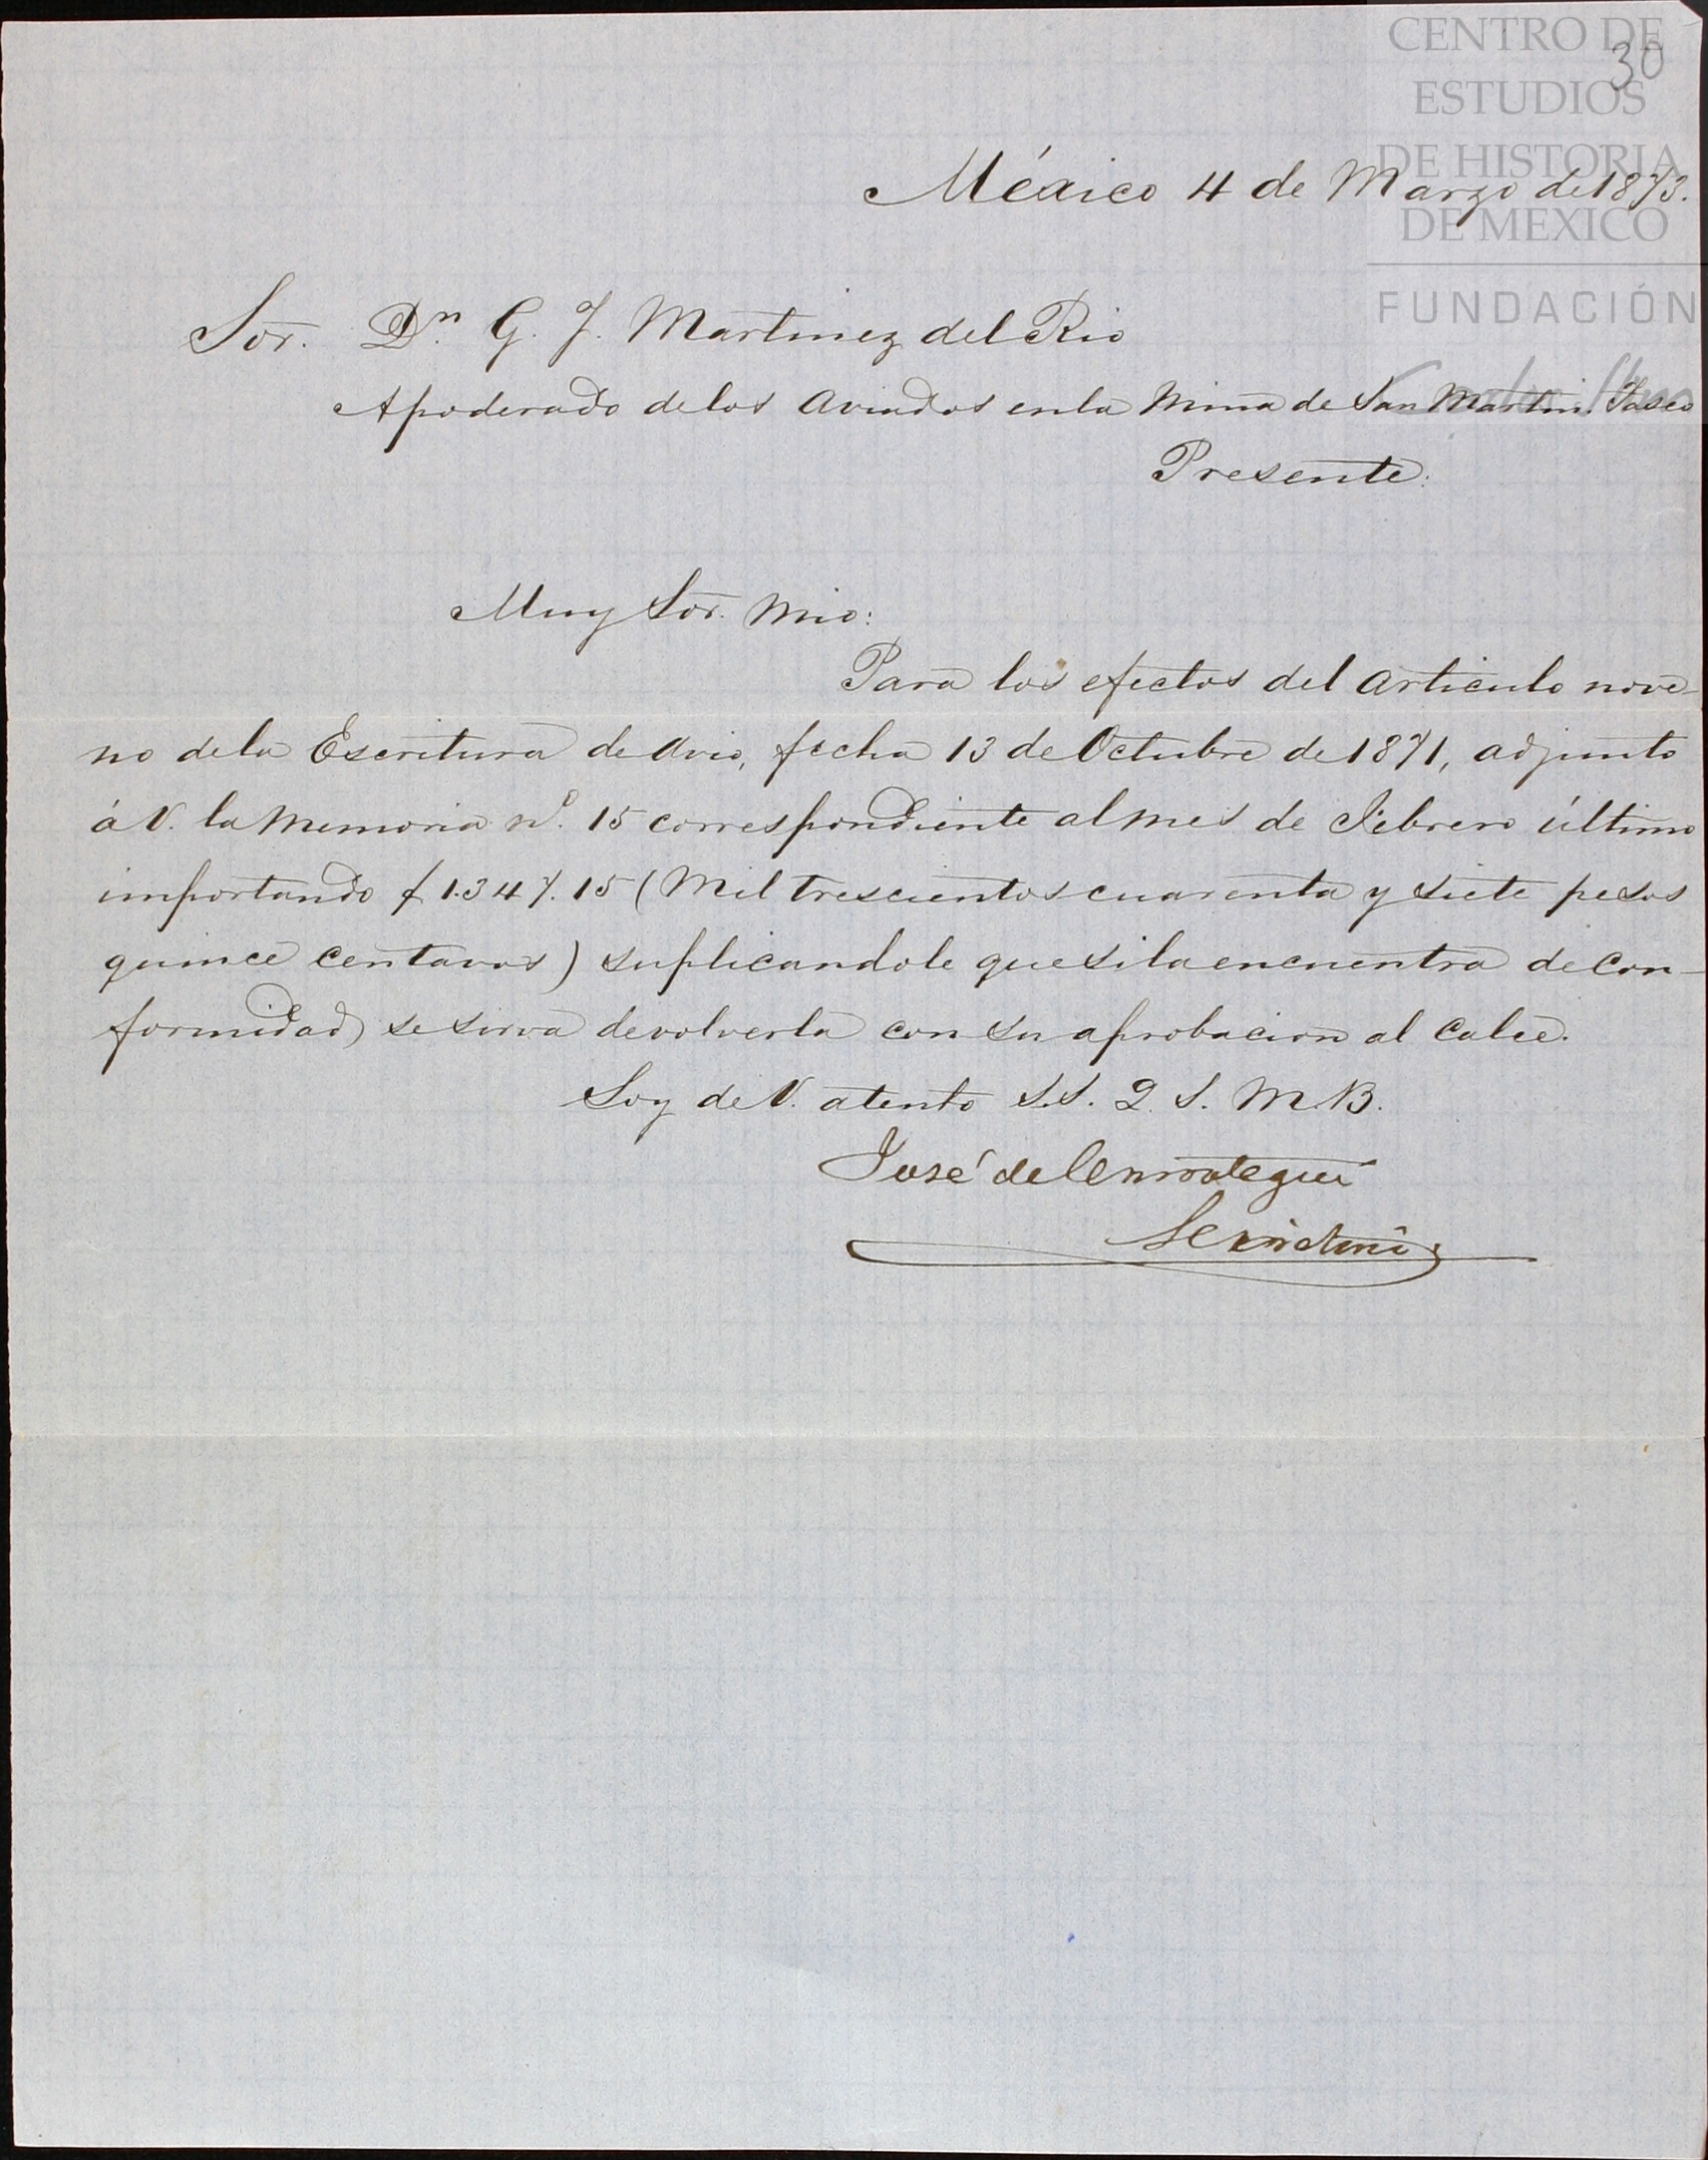 CENTRO DE
ESTUDIOS
DE HISTORIA
DE MEXICO
FUNDACIÓN
30
México 4 de Marzo de 1873.
Sor. Dn. G. J. Martinez del Rio
Apoderado de los Aviados en la Mina de San Martin. Tasco
Presente.
Muy Sor. mio:
Para los efectos del articulo nove-
no de la Escritura de avio, fecha 13 de Octubre de 1871, adjunto
á V. la memoria no. 15 correspondiente al mes de Febrero último
importando $ 1.347.15 (Mil trescientos cuarenta y siete pesos
quince centavos) suplicandole que si la encuentra de con-
formidad se sirva devolverla con su aprobacion al calce.
Soy de V. atento S.S. Q. S. M. B.
José de